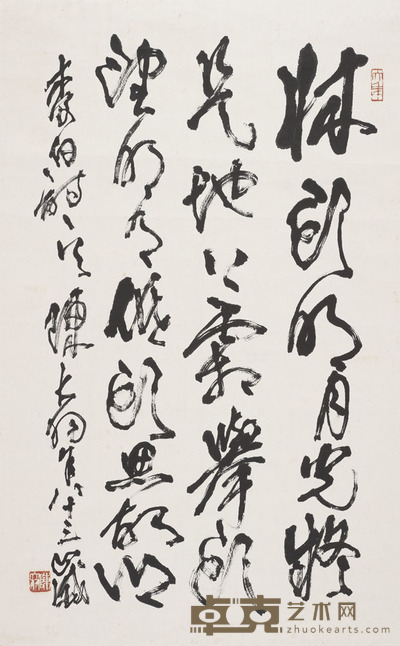 牀前明月光疑
是地上霜舉頭
望明月低頭思故鄉
李白詩 陳大羽年八十三歲
卓克艺术网
www.zhuokearts.com